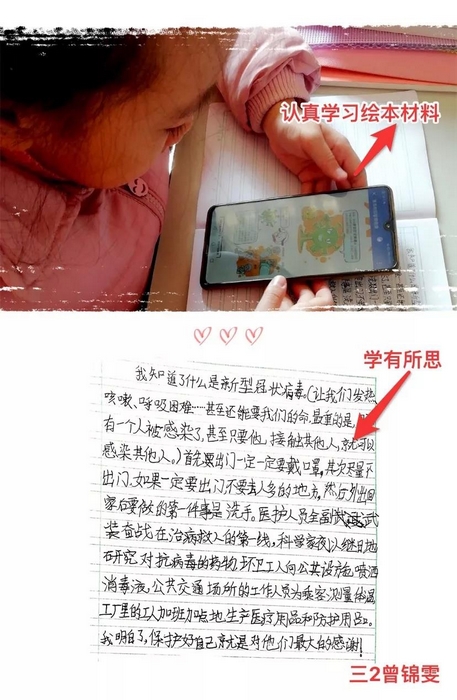 认真学习绘本材料
学有所思
我知道了什么是新型冠状病毒。(让我们发热
咳嗽、呼吸困难……甚至还能要我们的命。最重的是,
有一个人被感染了,甚至只要他,接触其他人,就可以
感染其他人。)首先要出门一定一定要戴口罩,其次尽量不
出门。如果一定要出门不要去人多的地方。然后外出回
家后要做的第一件事是洗手。医护人员全副武
装奋战在治病救人的第一线,科学家夜以继日地
研究对抗病毒的药物,环卫工人向公共设施喷洒
消毒液,公共交通场所的工作人员为乘客测量体温
工厂里的工人加班加点地生产医疗用品和防护用品。
我明白了,保护好自己就是对他们最大的感谢!
三2曾锦雯